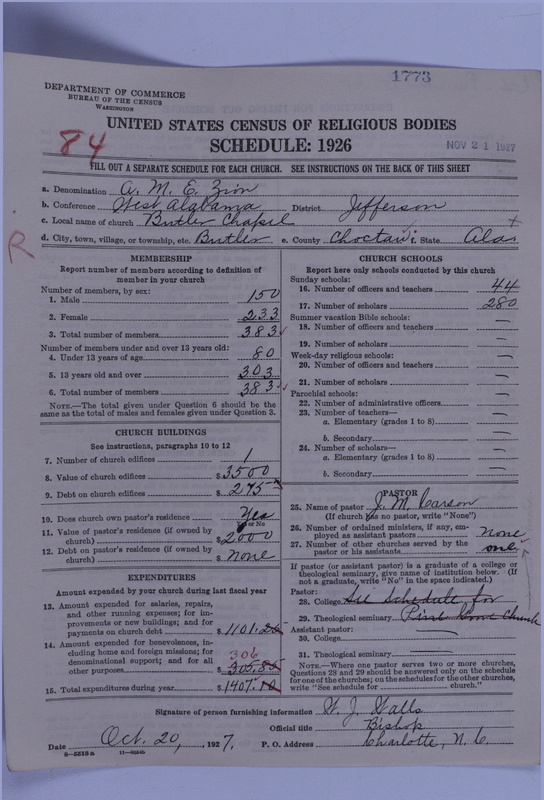 1773
DEPARTMENT OF COMMERCE
BUREAU OF THE CENSUS
WASHINGTON
84
UNITED STATES CENSUS OF RELIGIOUS BODIES
SCHEDULE: 1926
NOV 21 1927
FILL OUT A SEPARATE SCHEDULE FOR EACH CHURCH. SEE INSTRUCTIONS ON THE BACK OF THIS SHEET
a. Denomination A. M. E. Zion
b. Conference West Alabama District Jefferson
c. Local name of church Butler Chapel
d. City, town, village, or township, etc. Butler e. County Choctaw f. State Ala.
R
MEMBERSHIP
Report number of members according to definition of
member in your church
Number of members, by sex:
1. Male 150
2. Female 233
3. Total number of members 383
Number of members under and over 13 years old:
4. Under 13 years of age 80
5. 13 years old and over 303
6. Total number of members 383
NOTE.—The total given under Question 6 should be
same as the total of males and females given under Question 3.
CHURCH BUILDINGS
See instructions, paragraphs 10 to 12
7. Number of church edifices 1
8. Value of church edifices $ 3500
9. Debt on church edifices $ 275
10. Does church own pastor's residence Yes
Yes or No
11. Value of pastor's residence (if owned by
church) $ 2000
12. Debt on pastor's residence (if owned by
church) $ None
EXPENDITURES
Amount expended by your church during last fiscal year
13. Amount expended for salaries, repairs,
and other running expenses; for im-
provements or new buildings; and for
payments on church debt $ 1101.
14. Amount expended for benevolences, in-
cluding home and foreign missions; for
denominational support; and for all
other purposes $ 305.85
306
15. Total expenditures during year $ 1407.10
CHURCH SCHOOLS
Report here only schools conducted by this church
Sunday schools:
16. Number of officers and teachers 44
17. Number of scholars 280
Summer vacation Bible schools:
18. Number of officers and teachers —
19. Number of scholars —
Week-day religious schools:
20. Number of officers and teachers —
21. Number of scholars —
Parochial schools:
22. Number of administrative officers —
23. Number of teachers—
a. Elementary (grades 1 to 8) —
b. Secondary —
24. Number of scholars—
a. Elementary (grades 1 to 8) —
b. Secondary —
PASTOR
25. Name of pastor J. M. Carson
(If church has no pastor, write "None")
26. Number of ordained ministers, if any, em-
ployed as assistant pastors None
27. Number of other churches served by the
pastor or his assistants one
If pastor (or assistant pastor) is a graduate of a college or
theological seminary, give name of institution below. (If
not a graduate, write "No" in the space indicated.)
Pastor:
28. College See Schedule for
29. Theological seminary Church
Assistant pastor:
30. College —
31. Theological seminary —
NOTE.—Where one pastor serves two or more churches,
Questions 28 and 29 should be answered only on the schedule
for one of the churches; on the schedules for the other churches,
write "See schedule for church."
Signature of person furnishing information W. J. Walls
Official title Bishop
Date Oct. 20, 1927. P. O. Address Charlotte, N. C.